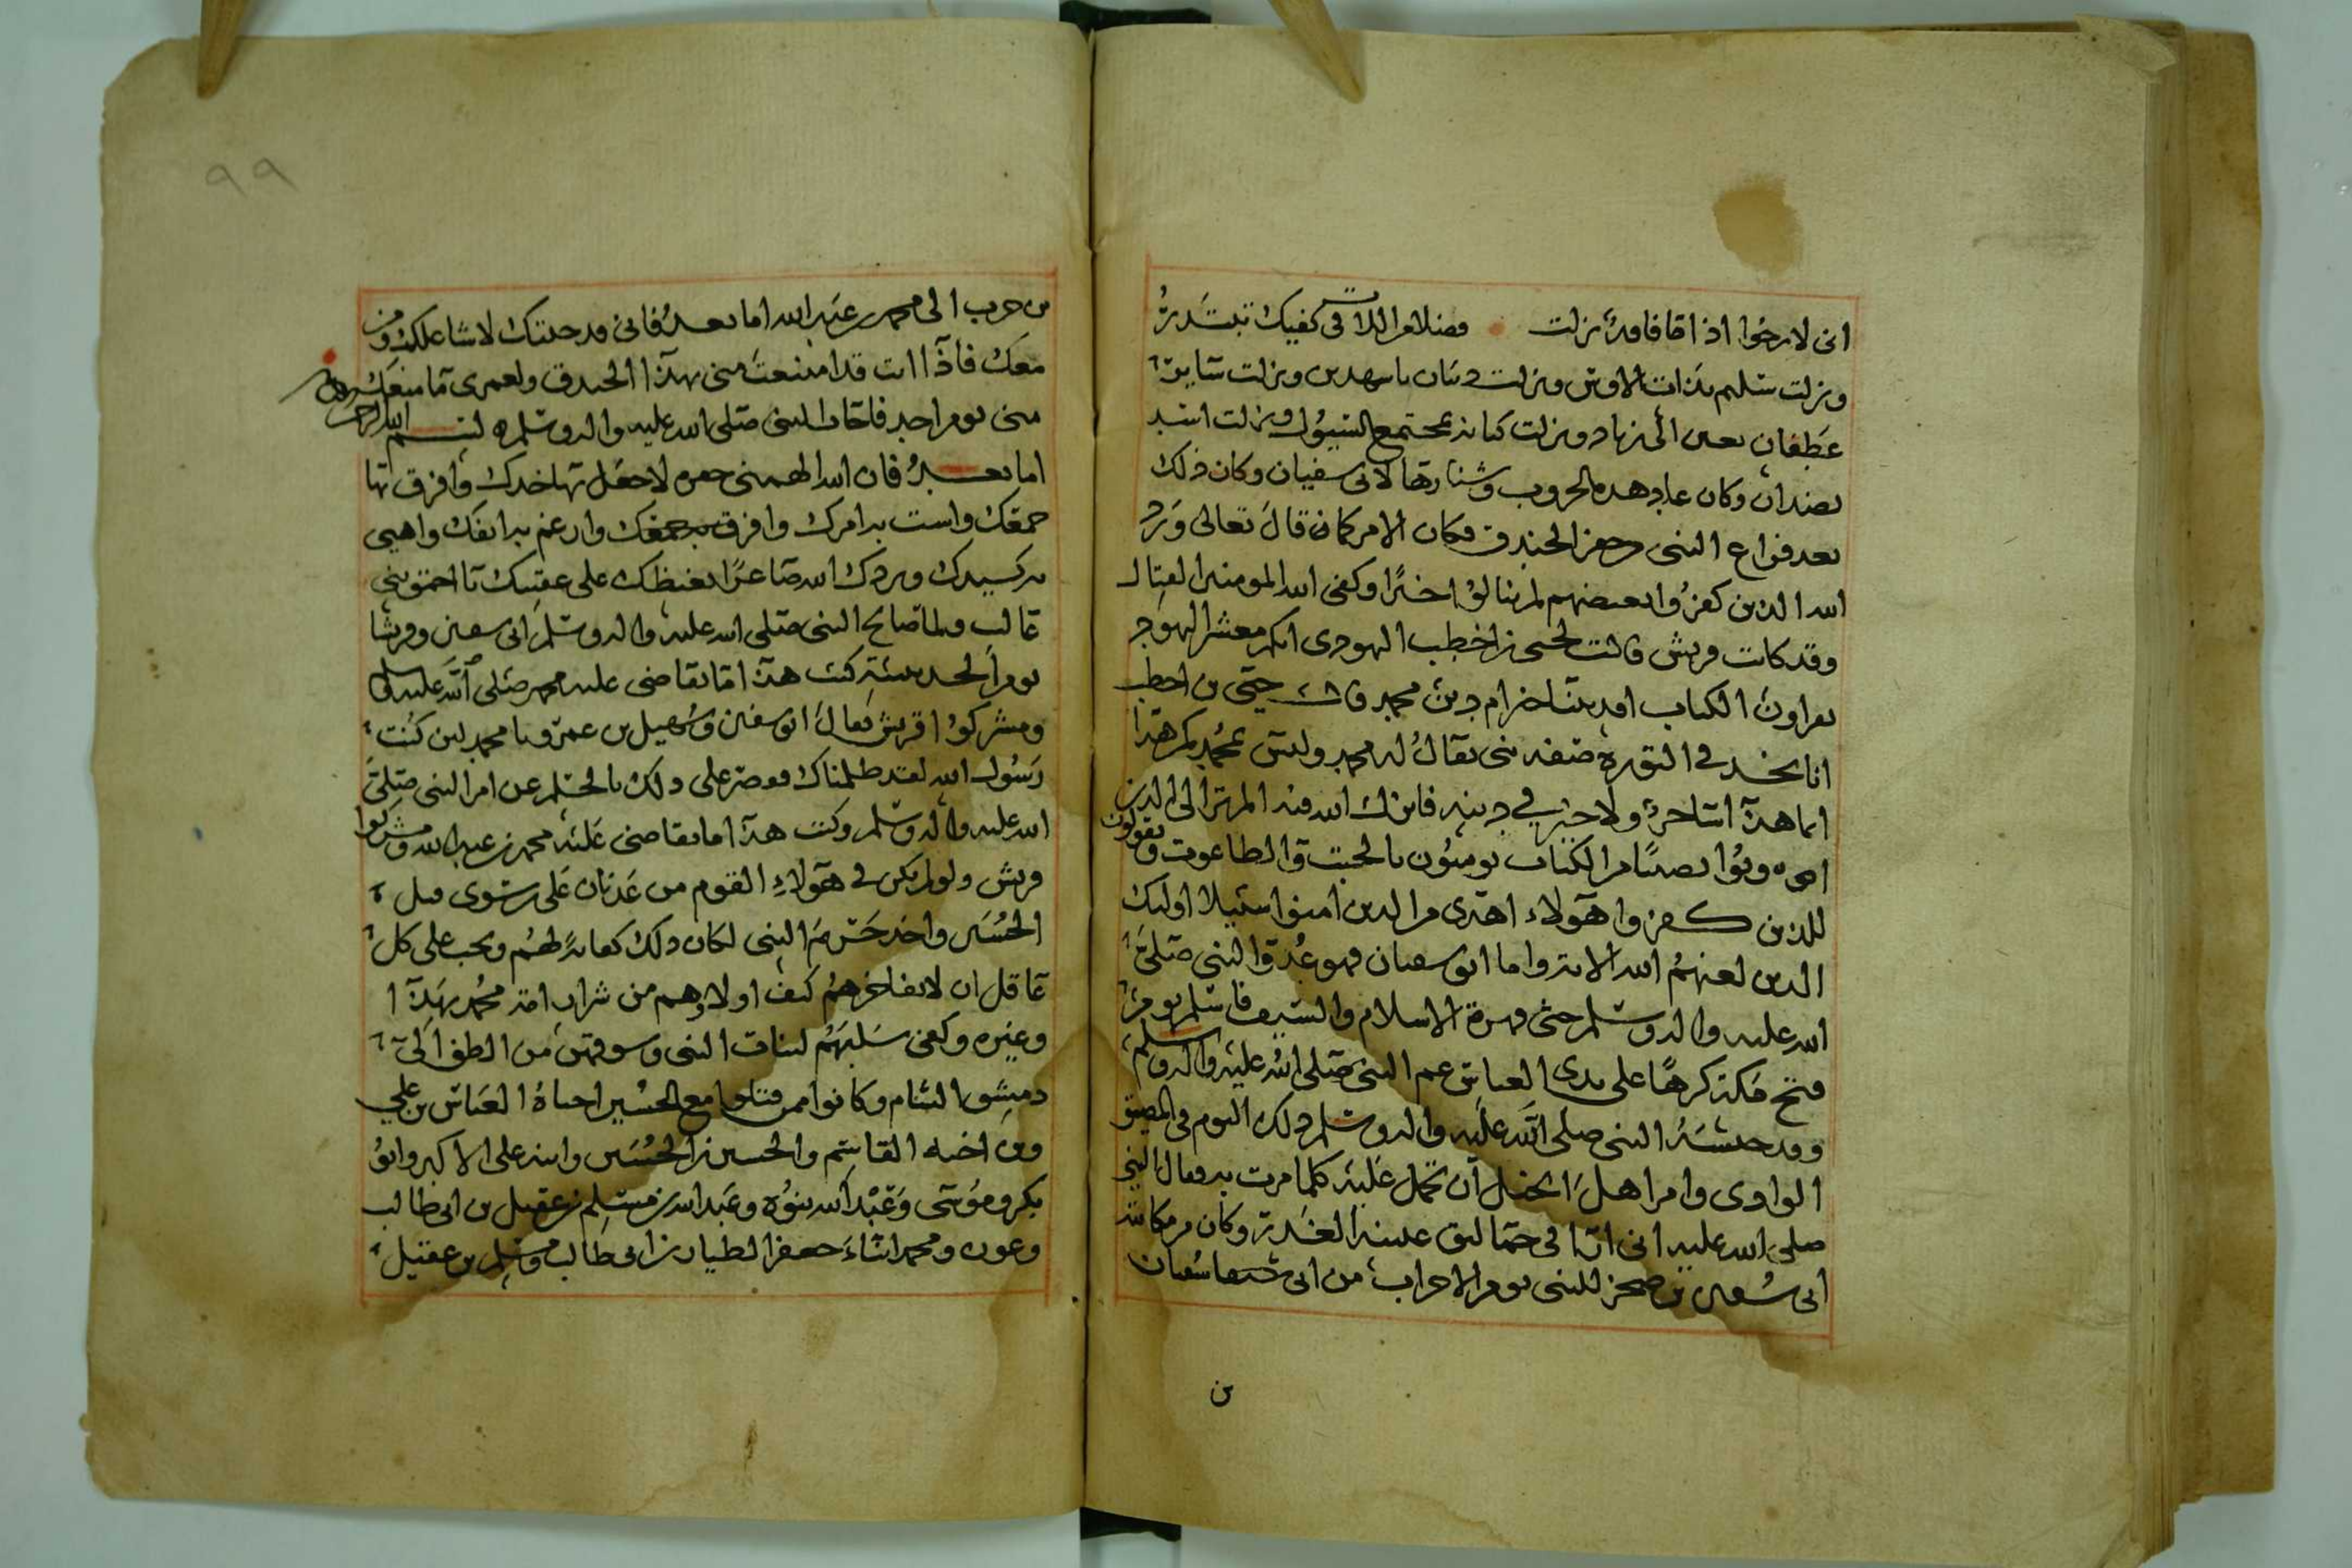 انى لارجوا اذا قا فامة نزلت فضلا من اللاتى كفيك تبتدرة
ونزلت سليم بذات الاوس ونزلت دبيان باسهدين ونزلت سايرة
غطفان بعين ابى زياد ونزلت كنانة بمجتمع السيول ونزلت اسد
بضدان وكان عاد هده الحروب وشنارتها لابى سفيان وكان ذلك
بعد فراع النبى حفر الخندق فكان الامر كما قال تعالى ورد
الله الذين كفروا بغيضهم لم ينالوا خيرا وكفى الله المومنين القتال
وقد كانت قريش قالت لحيى بن اخطب اليهودى انكم معشر اليهود
تقراون الكتاب افديننا خير ام دين محمد فقال حيى بن اخطب
انا نجد فى التورة صفة نبى يقال له محمد وليس محمدكم هذا
انما هذا ساحر ولا خير في دينه فانزل الله فيه الم تر الى الذين
اوتوا نصيبا من الكتاب يومنون بالجبت والطاغوت ويقولون
للذين كفروا هولاء اهدى من الذين امنوا سبيلا اوليك
الذين لعنهم الله الاية واما ابو سفيان فهو عدو النبى صلى
الله عليه واله وسلم حتى قهره الاسلام والسيف فاسلم يوم
فتح مكة كرها على يدى العباس عم النبى صلى الله عليه واله وسلم
وقد حبسه النبى صلى الله عليه واله وسلم ذلك اليوم فى المضيق
الوادى وامر اهل الخيل ان تحمل عليه كلما مرت به فقال النبى
صلى الله عليه انى انا فى حمالق عينيه الغدرة وكان من مكاتبة
ابى سفين بن صخر للنبى يوم الاحزاب من ابى سفيان
من
٩٩
بن حرب الى محمد بن عبد الله اما بعد فانى قد جيتك لاشا عليك ومن
معك فاذا انت قد امتنعت منى بهذا الخندق ولعمرى ما منعك
منى يوم احد فاجاب النبى صلى الله عليه واله وسلم بسم الله الرحمن الرحيم
اما بعد فان الله الهمنى حفره لاجعل بها خدك وافرق بها
جمعك واست به امرك وافرق به جمعك وارغم به انفك واهيى
به كيدك وردك الله صاغرا بغيظك على عقبيك يا احمق بنى
غالب ولما صالح النبى صلى الله عليه واله وسلم ابى سفين وقريشا
يوم الحديبية كتب هذا ما تقاضى عليه محمد صلى الله عليه وسلم
ومشركوا قريش فقال ابو سفين وسهيل بن عمرو يا محمد لين كنت
رسول الله لقد ظلمناك فوضر على ذلك بالحلم عن امر النبى صلى
الله عليه واله وسلم وكتب هذا ما تقاضى عليه محمد بن عبد الله ومشركوا
قريش ولو لم يكن فى هولاء القوم من عدنان على سوى قبل
الحسين واخذ حرم النبى لكان ذلك كفاية لهم ويجب على كل
عاقل ان لا يفاخرهم كيف اولاوهم من شرار امة محمد بهذا
وغيره وكفى سلبهم لبنات النبى وسوقهن من الطف الى
دمشق الشام وكانوا ممن قتلوا مع الحسين اخاه العباس بن على
وبن اخيه القاسم والحسين بن الحسين وابنه على الاكبر وابو
بكر وموسى وعبد الله بنوه وعبد الله بن مسلم بن عقيل بن ابى طالب
وعون ومحمد ابناء جعفر الطيار بن ابى طالب ومسلم بن عقيل